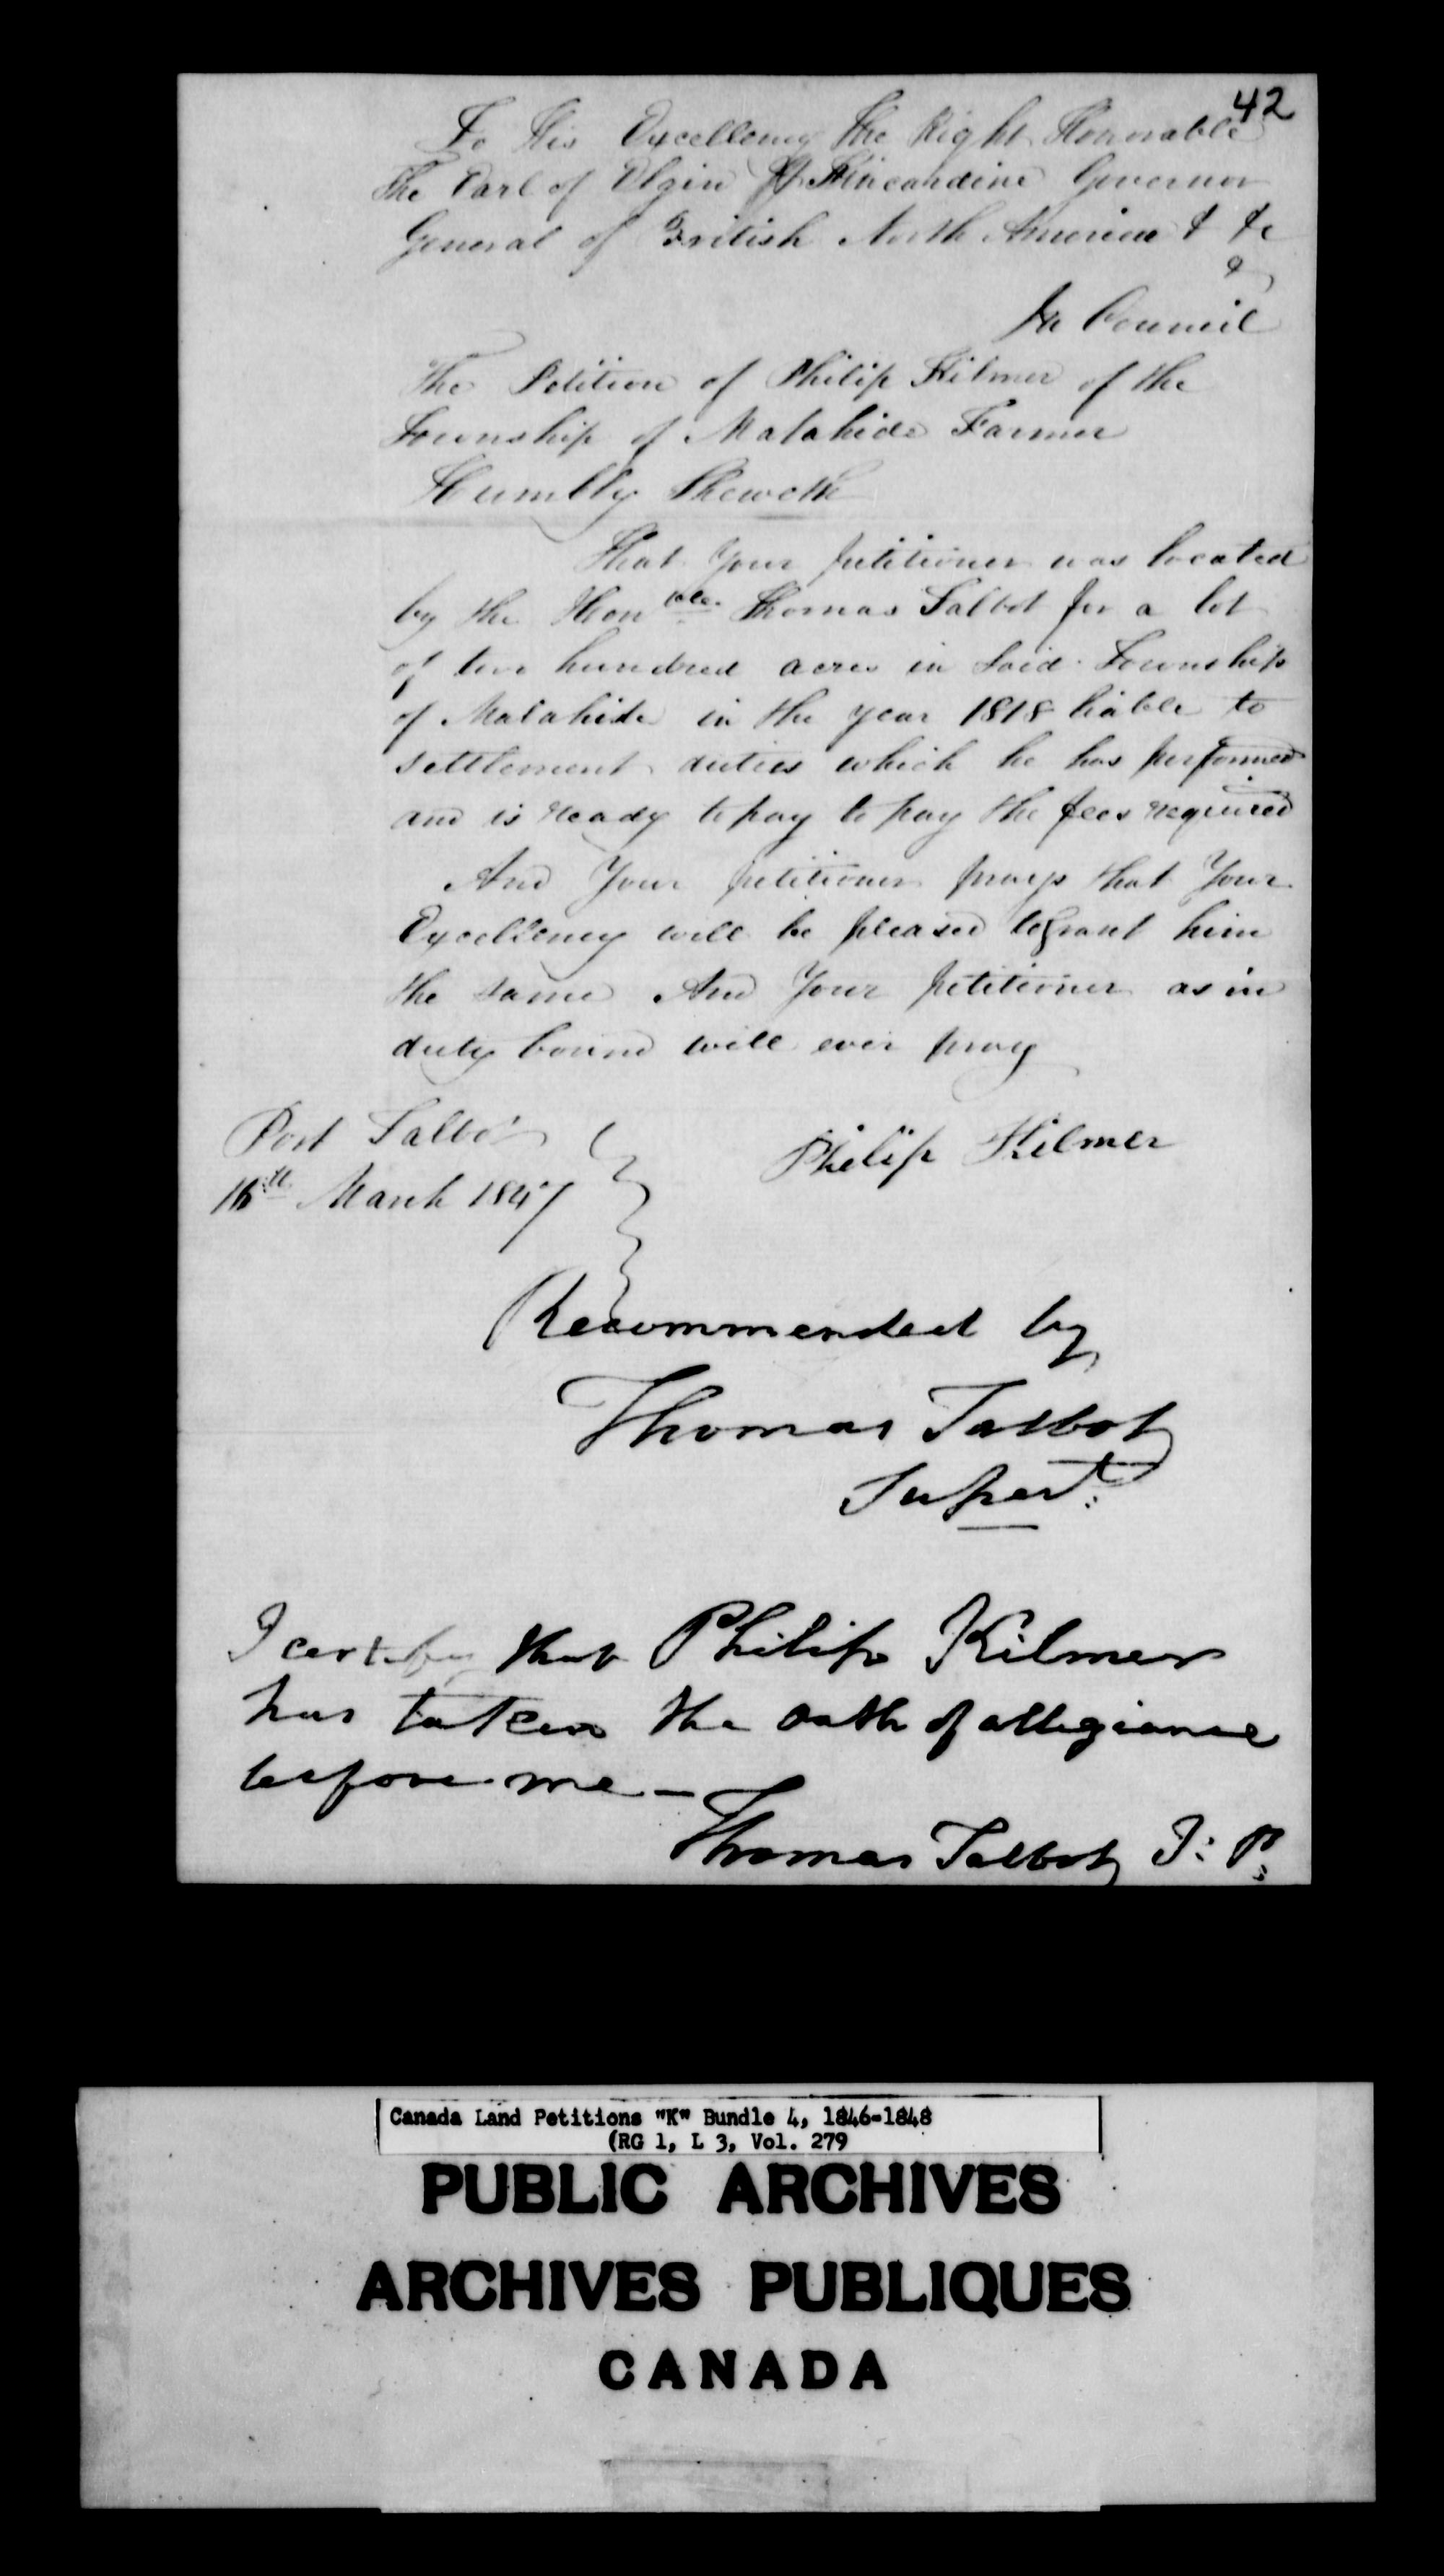 42
To His Excellency The Right Honorable
The Earl of Elgin & Kincardine Governor
General of British North America & &c
&
In Council
The Petition of Philip Kilmer of the
Township of Malahide Farmer
Humbly Sheweth
That Your petitioner was located
by the Honble. Thomas Talbot for a lot
of two hundred acres in said Township
of Malahide in the year 1818 liable to
settlement duties which he has performed
and is ready to pay to pay the fees required
And Your petitioner prays that Your
Excellency will be pleased to grant him
the same And Your petitioner as in
duty bound will ever pray
Port Talbot
16th March 1847
Philip Kilmer
Recommended by
Thomas Talbot
Supert:
I certify that Philip Kilmer
has taken the oath of allegiance
before me —
Thomas Talbot J: P:
Canada Land Petitions "K" Bundle 4, 1846-1848
(RG 1, L 3, Vol. 279
PUBLIC ARCHIVES
ARCHIVES PUBLIQUES
CANADA